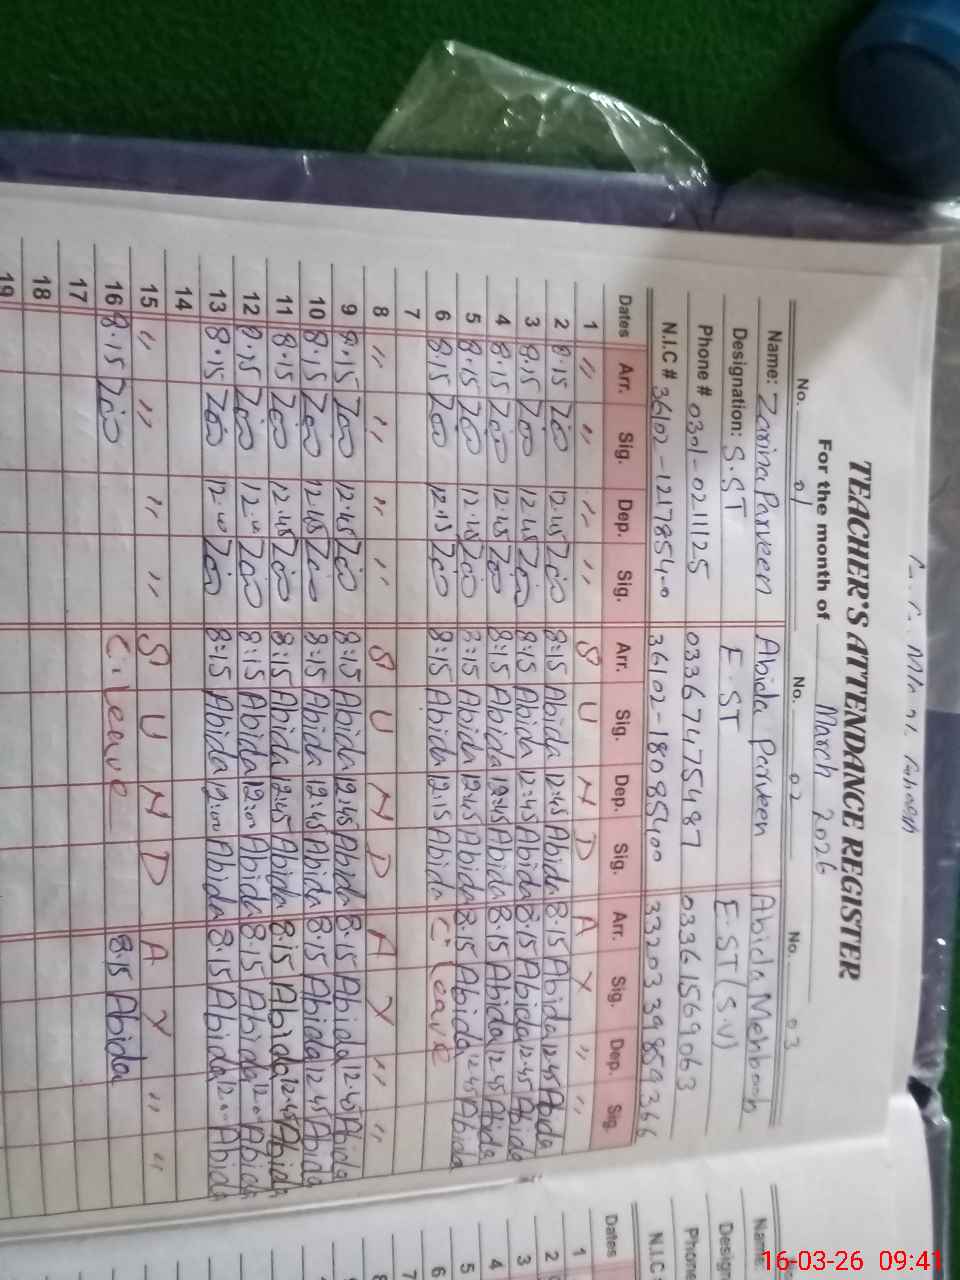 TEACHER'S ATTENDANCE REGISTER
For the month of March 2026
No. 01 No. 02 No. 03
Name: Zarina Parveen Abida Parveen Abida Mehboob
Designation: S.ST E.ST E.ST (S.V)
Phone # 0301-0211125 03367475487 03361569063
N.I.C # 36102-1217854-0 36102-18085400 3320339859366
Dates Arr. Sig. Dep. Sig. Arr. Sig. Dep. Sig. Arr. Sig. Dep. Sig.
1 " " " " S U N D A Y " "
2 8.15 12.45 8:15 Abida 12:45 Abida 8.15 Abida 12.45 Abida
3 8.15 12.45 8:15 Abida 12:45 Abida 8.15 Abida 12.45 Abida
4 8.15 12.45 8:15 Abida 12:45 Abida 8.15 Abida 12.45 Abida
5 8.15 12.45 8:15 Abida 12:45 Abida 8.15 Abida 12.45 Abida
6 8.15 12.15 8:15 Abida 12:15 Abida C.Leave
7
8 " " " " S U N D A Y " "
9 8.15 12.45 8:15 Abida 12:45 Abida 8.15 Abida 12.45 Abida
10 8.15 12.45 8:15 Abida 12:45 Abida 8.15 Abida 12.45 Abida
11 8.15 12.45 8:15 Abida 12:45 Abida 8.15 Abida 12.45 Abida
12 8.15 8:15 Abida 12:00 Abida 8.15 Abida Abida
13 8.15 8:15 Abida 12:00 Abida 8.15 Abida Abida
14
15 " " " " S U N D A Y " "
16 8.15 C.Leave 8.15 Abida
17
18
19
Dates
1
2
3
4
5
6
7
8
Name:
Phone
N.I.C
16-03-26 09:41